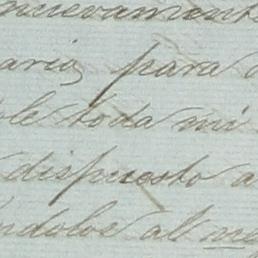 nuevamente
aria, para
ole toda mi
dispuesto a
ndolos al